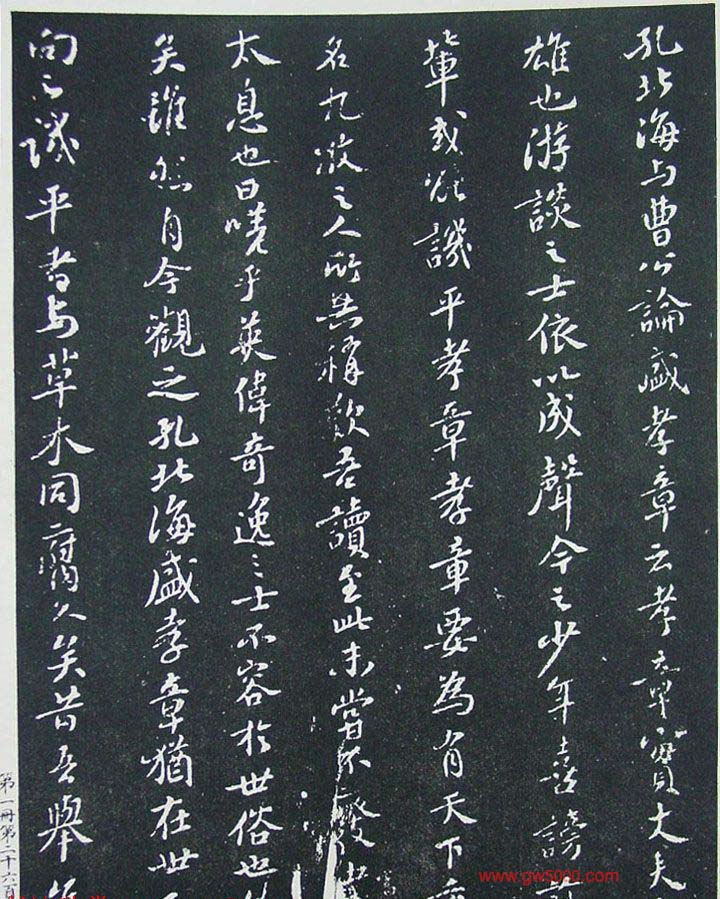 孔北海与曹公論盛孝章云孝章實大丈夫
雄也游談之士依以成聲今之少年喜謗
輩或能譏平孝章孝章要為有天下
名九牧之人所共稱歎吾讀至此未嘗不廢書
太息也曰嗟乎英偉奇逸之士不容於世俗也
矣雖然自今觀之孔北海盛孝章猶在世
向之譏平者与草木同腐久矣昔吾舉
第一冊第二十六頁
www.gw5000.com